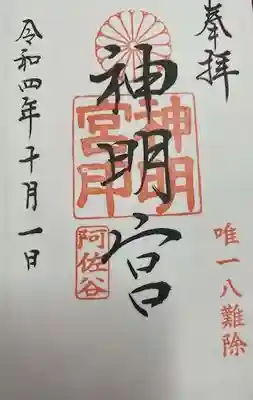 奉拝
唯一八難除
神明宮
神明宮印
阿佐谷
令和四年十月一日